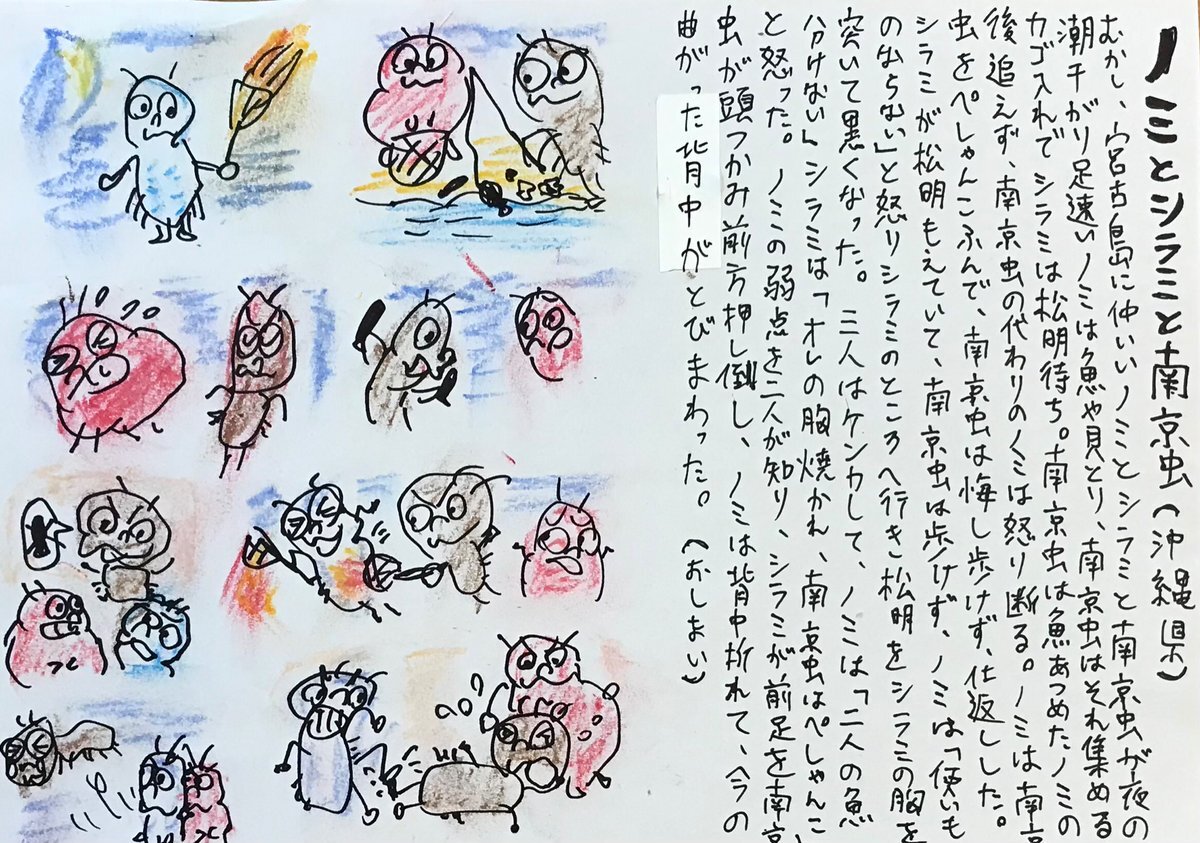 ノミとシラミと南京虫(沖縄県)
むかし、宮古島に仲いいノミとシラミと南京虫が夜の
潮干がり足速いノミは魚や貝とり、南京虫はそれ集める
カゴ入れでシラミは松明待ち。南京虫は魚あつめたノミの
後追えず、南京虫の代わりのくミは怒り断る。ノミは南京
虫をぺしゃんこふんで、南京虫は悔し歩けず、仕返しした。
シラミが松明もえていて、南京虫は歩けず、ノミは「使いも
のならない」と怒りシラミのところへ行き松明をシラミの胸を
突いて黒くなった。三人はケンカして、ノミは「二人の魚
分けない」シラミは「オレの胸焼かれ、南京虫はぺしゃんこ」
と怒った。ノミの弱点を二人が知り、シラミが前足を南京
虫が頭つかみ前方押し倒し、ノミは背中折れて、今の
曲がった背中がとびまわった。(おしまい)